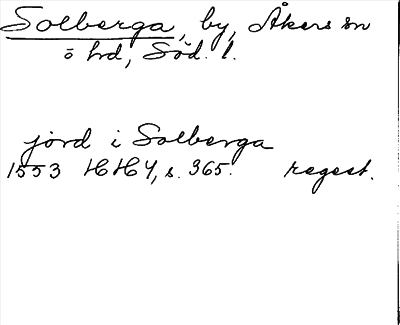 Solberga, by, Åkers sn
ö hd, Söd. l.
jord i Solberga
1553 HH4, s. 365. regest.